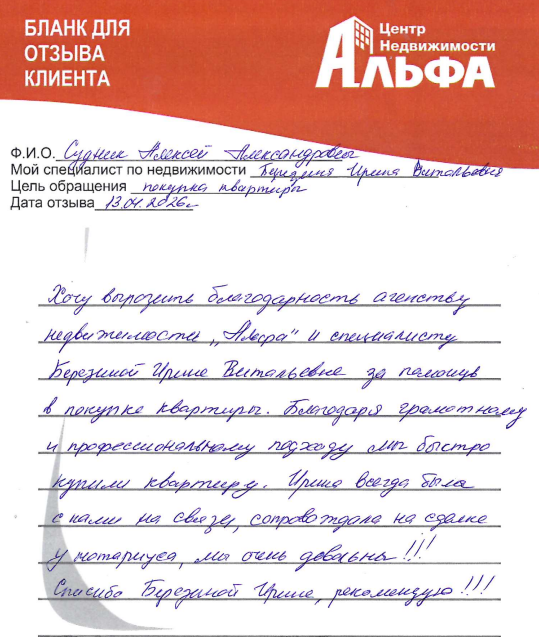 БЛАНК ДЛЯ
ОТЗЫВА
КЛИЕНТА
Центр
Недвижимости
АЛЬФА
Ф.И.О. Судник Алексей Александрович
Мой специалист по недвижимости Березина Ирина Витальевна
Цель обращения покупка квартиры
Дата отзыва 13.04.2026г
Хочу вырозить благодарность агенству
недвижимости „Альфа" и специалисту
Березиной Ирине Витальевне за помощь
в покупке квартиры. Благодаря грамотному
и профессиональному подходу мы быстро
купили квартиру. Ирина всегда была
с нами на связи, сопровождала на сделке
у нотариуса, мы очень довольны!!!
Спасибо Березиной Ирине, рекомендую!!!